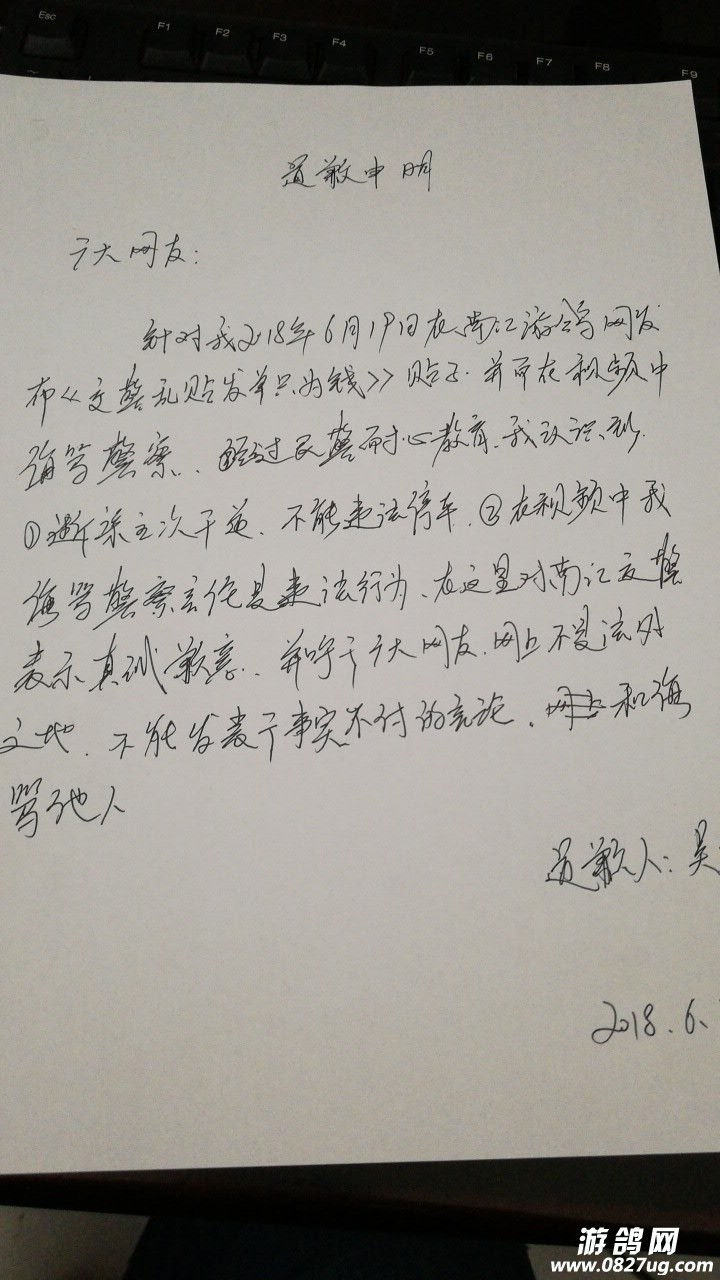 Esc F1 F2 F3 F4 F5 F6 F7 F8 F9
道歉申明
广大网友：
针对我2018年6月19日在南江游鸽网发
布《交警乱贴发单只为钱》贴子.并而在视频中
侮骂警察、经过民警耐心教育、我认识到.
①主次干道、不能违法停车.②在视频中我
侮骂警察言伦是违法行为、在这里对南江交警
表示真诚歉意、并呼于广大网友、网上不是法外
之地、不能发表于事实不付的言论、网上和侮
骂他人
道歉人：吴
2018.6.
游鸽网
www.0827ug.com